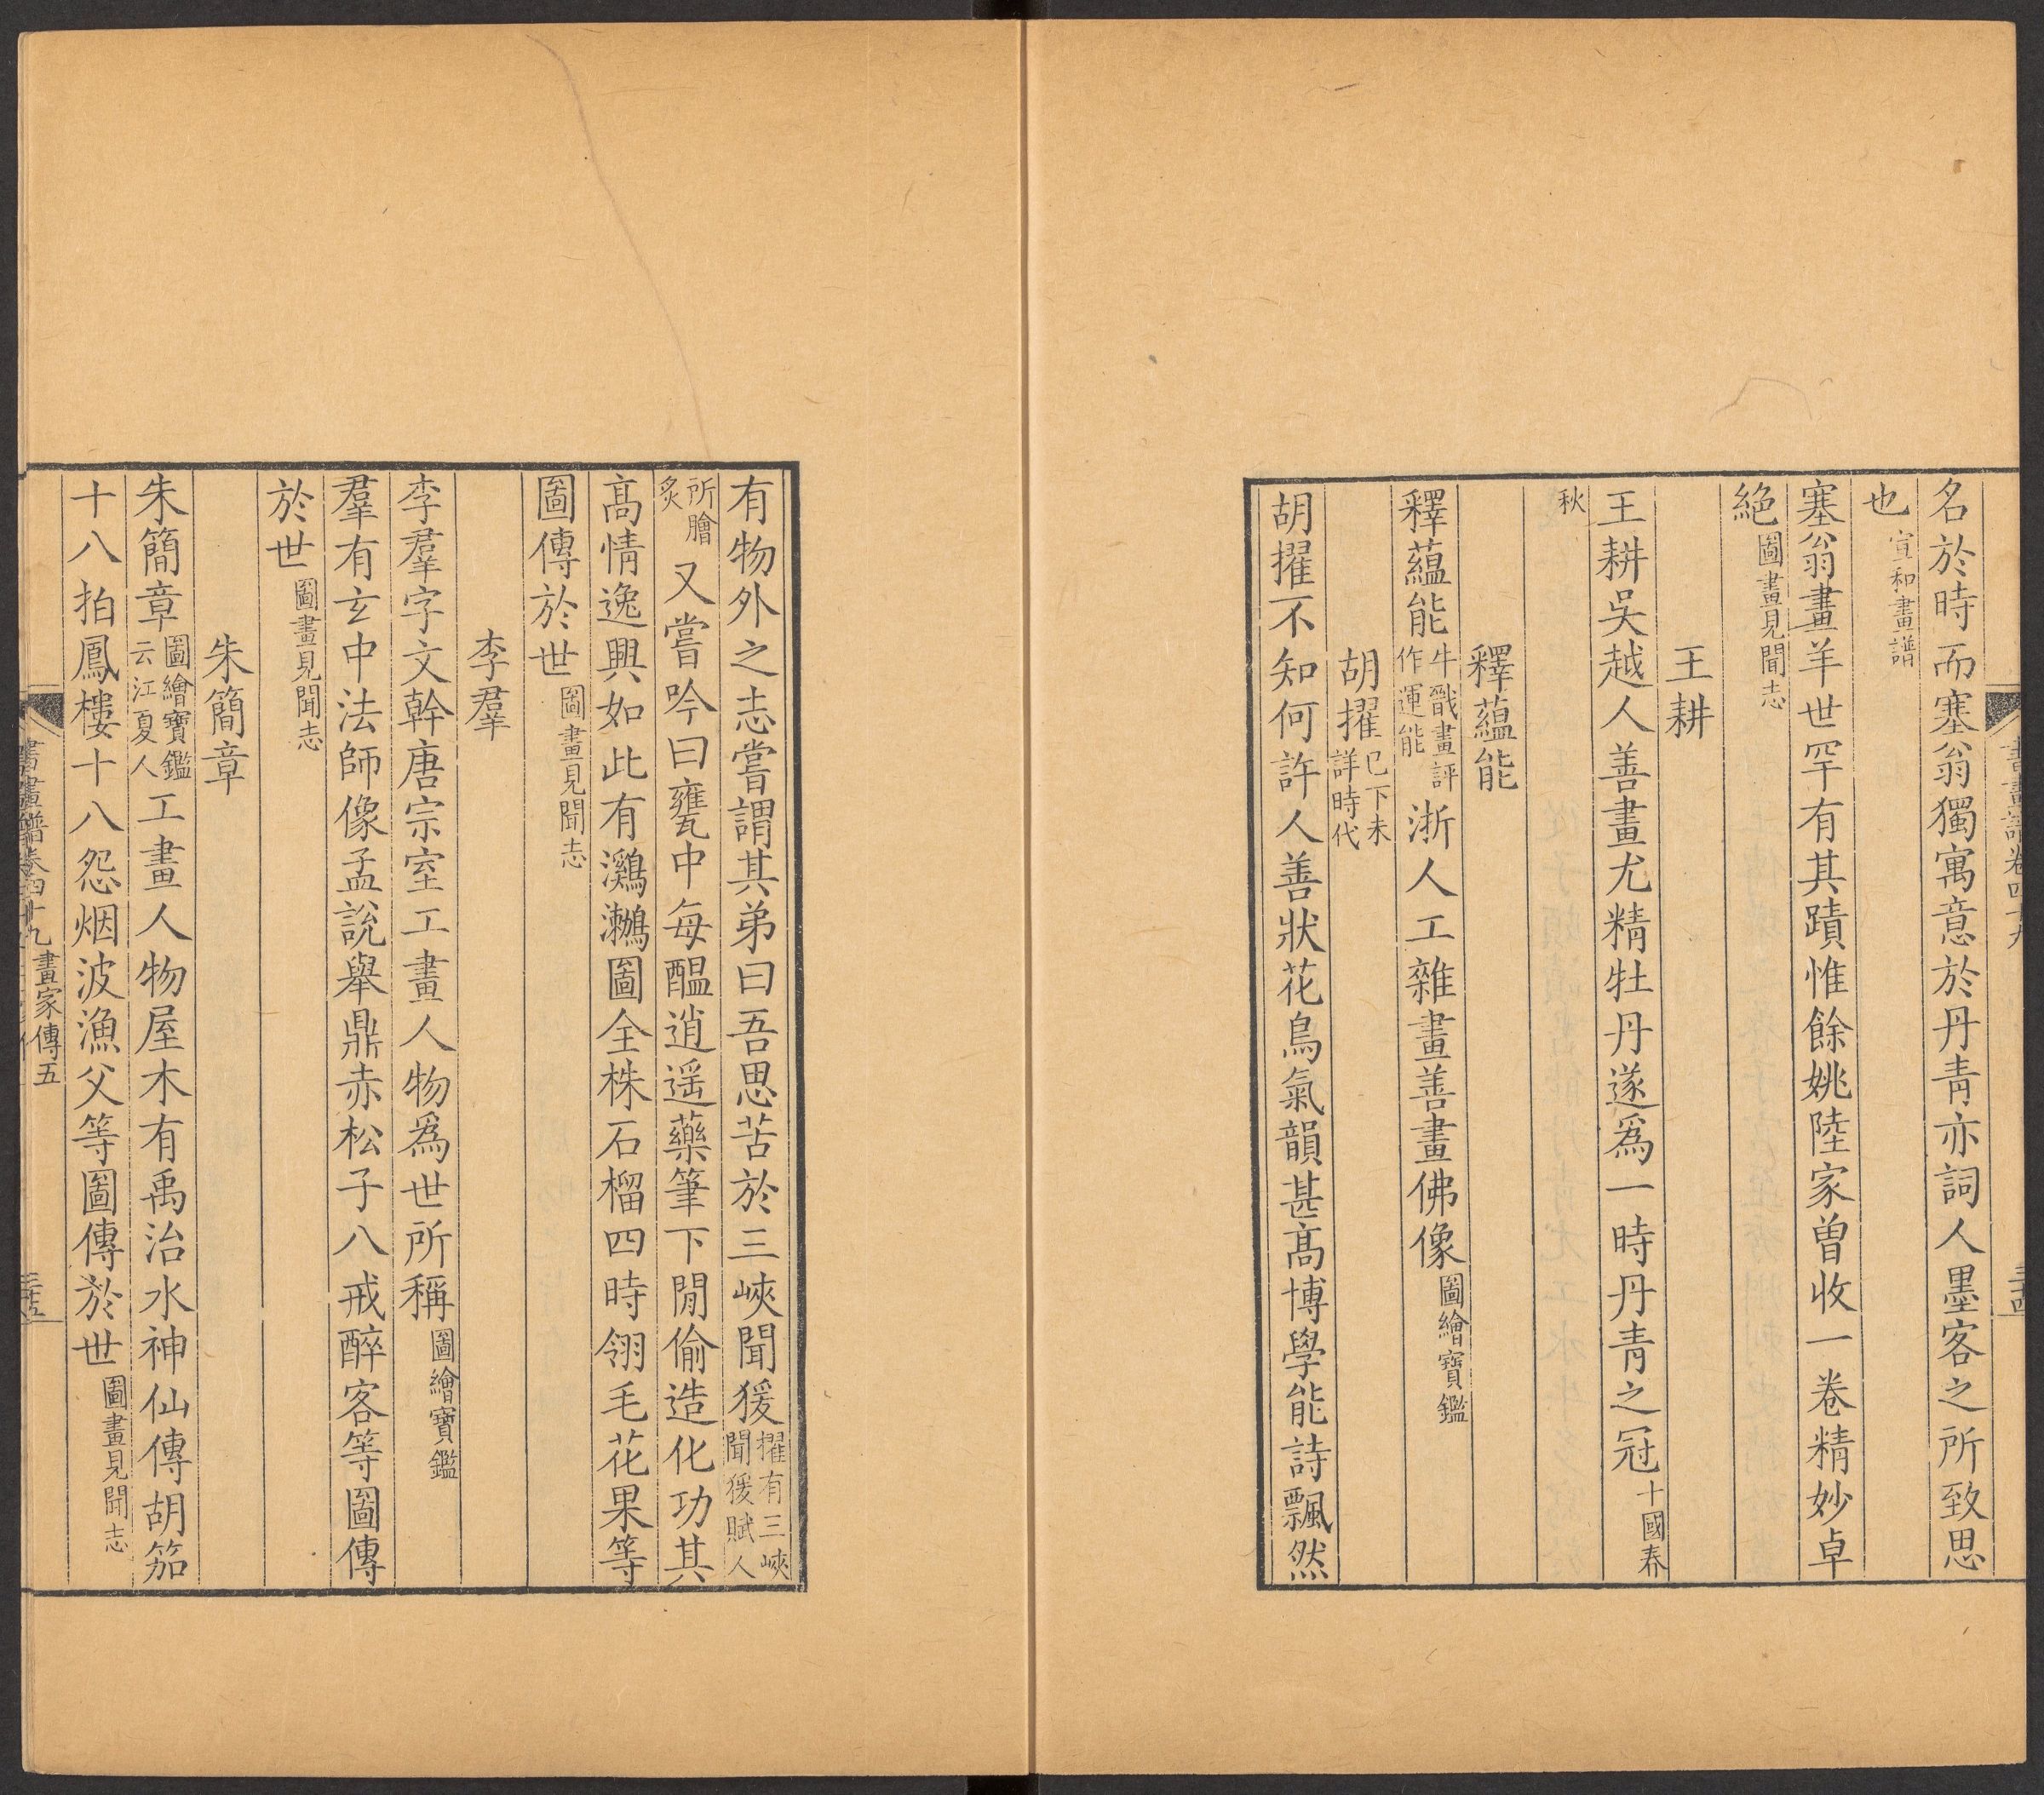 名於時而塞翁獨寓意於丹青亦詞人墨客之所致思
也宣和畫譜
塞翁畫羊世罕有其蹟惟餘姚陸家曾收一卷精妙卓
絕圖畫見聞志
王耕
王耕吳越人善畫尤精牡丹遂爲一時丹青之冠十國春
秋
釋蘊能
釋蘊能牛戬畫評作運能浙人工雜畫善畫佛像圖繪寶鑑
胡擢已下未詳時代
胡擢不知何許人善狀花鳥氣韻甚高博學能詩飄然
有物外之志嘗謂其弟曰吾思苦於三峽聞猨擢有三峽聞猨賦人
所膾炙又嘗吟曰甕中每醖逍遥藥筆下閒偷造化功其
高情逸興如此有鸂鷘圖全株石榴四時翎毛花果等
圖傳於世圖畫見聞志
李羣
李羣字文幹唐宗室工畫人物爲世所稱圖繪寶鑑
羣有玄中法師像孟說舉鼎赤松子八戒醉客等圖傳
於世圖畫見聞志
朱簡章
朱簡章圖繪寶鑑云江夏人工畫人物屋木有禹治水神仙傳胡笳
十八拍鳳樓十八怨烟波漁父等圖傳於世圖畫見聞志
書畫譜卷四十九 畫家傳五